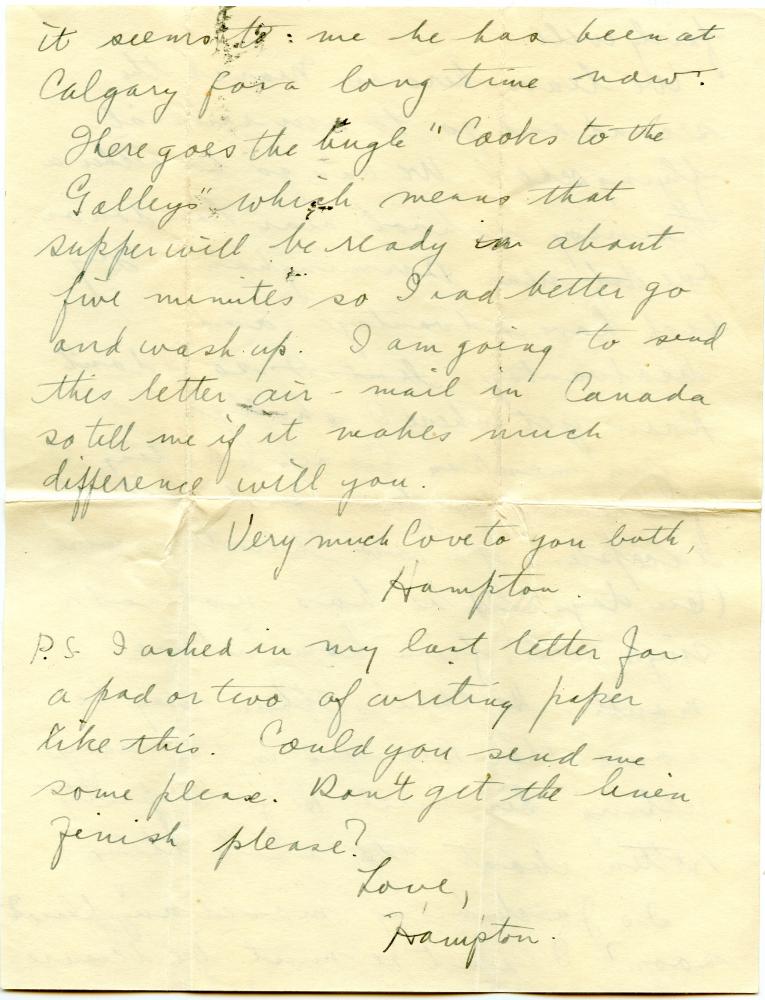 it seems to me he has been at
Calgary for a long time now.
There goes the bugle "Cooks to the
Galleys" which means that
supper will be ready in about
five minutes so I had better go
and wash up. I am going to send
this letter air-mail in Canada
so tell me if it makes much
difference will you.
Very much love to you both,
Hampton.
P.S. I asked in my last letter for
a pad or two of writing paper
like this. Could you send me
some please. Don't get the linen
finish please?
Love,
Hampton.